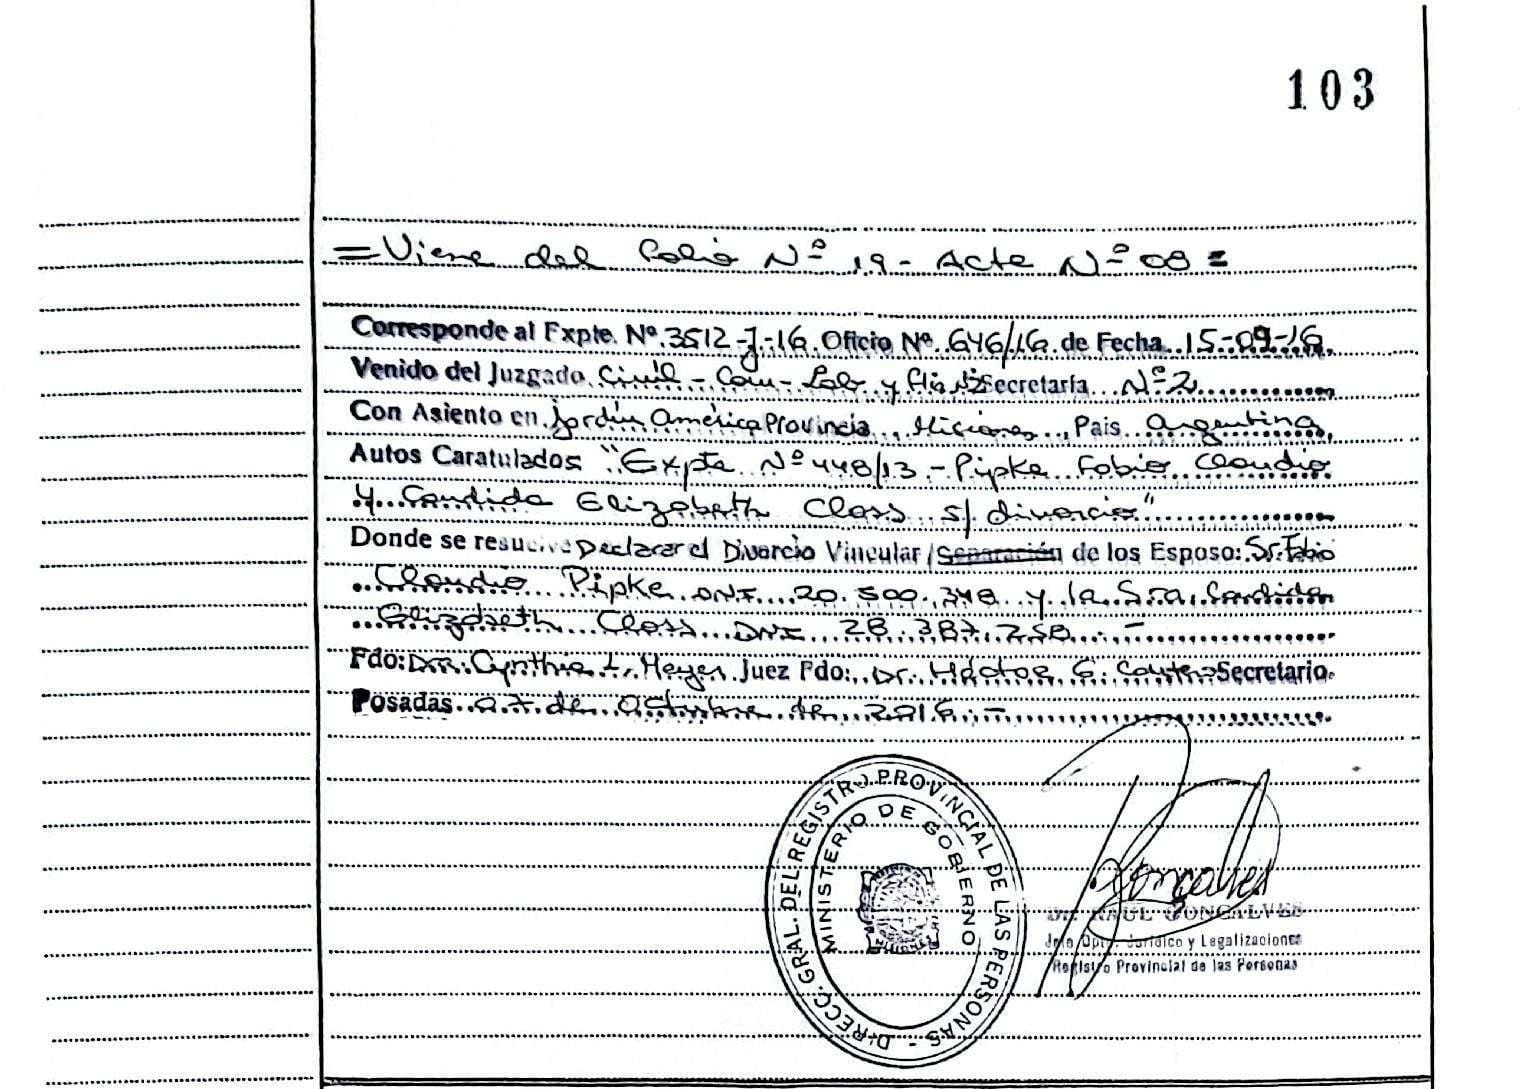 103
= Viene del Folio Nº 19 - Acta Nº 08 =
Corresponde al Expte. Nº 3512-J-16 Oficio Nº 646/16 de Fecha 15-09-16
Venido del Juzgado Civil - Com - Lab y Flia Secretaría Nº 2
Con Asiento en Jardín América Provincia Misiones Pais Argentina
Autos Caratulados "Expte Nº 448/13 - Pipke Fabio Claudio
y Candida Elizabeth Class s/ divorcio"
Donde se resuelve Declarar el Divorcio Vincular / Separación de los Esposo: Sr. Fabio
Claudio Pipke DNI 20.500.348 y la Sra. Candida
Elizabeth Class DNI 28.387.258 -
Fdo: Dra. Cynthia L. Heyer Juez Fdo: Dr. Héctor G. Secretario.
Posadas 07 de Octubre de 2016 -
DIRECC. GRAL. DEL REGISTRO PROVINCIAL DE LAS PERSONAS -
MINISTERIO DE GOBIERNO
Gonçalves
Dr. RAUL GONCALVES
Jefe Dpto. Jurídico y Legalizaciones
Registro Provincial de las Personas